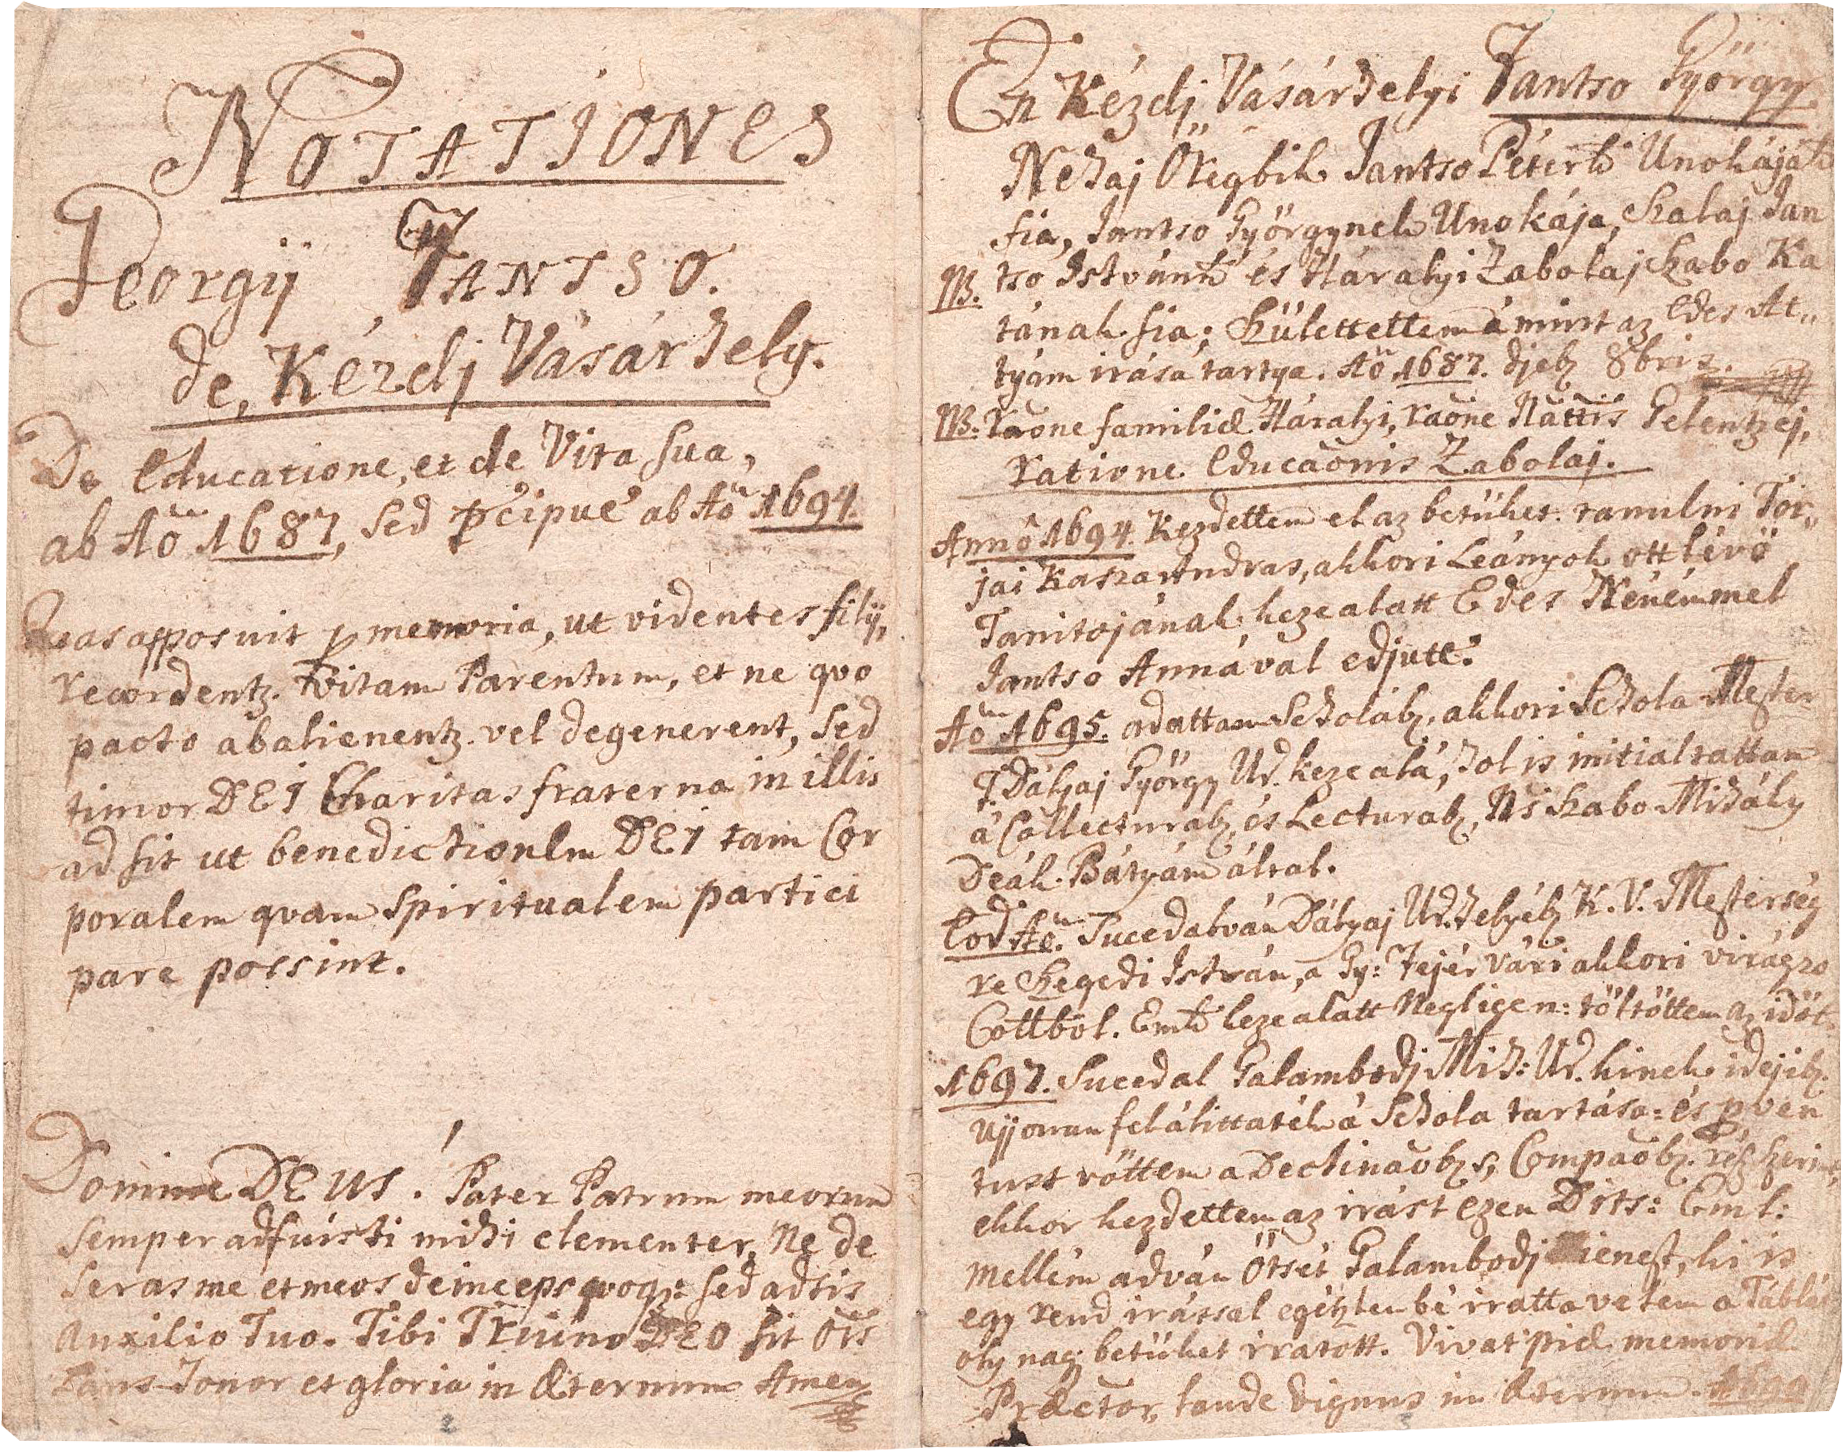 NOTATIONES
Georgij JANTSO.
de, Kézdj Vásárhely.
De Educatione, et de Vita sua,
ab Aõ 1687, sed p̃cipuè ab Aõ 1694.
Quas apposuit p memoria, ut videntes filij,
recordentz. Vitam Parentum, et ne qvo
pacto abalienentz. vel degenerent, sed
timor DEI Charitas fraterna in illis
adsit ut benedictionem DEI tam Cor
poralem qvam Spiritualem partici
pare possint.
Domine DEUS! Pater Patrum meorum
semper adfuisti mihi clementer, Ne de
seras me et meos deinceps qvoq;: sed adsis
Auxilio Tuo. Tibi Triuno DEO sit Oĩs
Laus honor et gloria in Æternum Amen
En Kézdj Vásárhelyi Jantso György
Nehaj Öregbik Jantso Péterñk Unokájañk
fia, Jantso Györgynek Unokája, Szalaj Jan
NB. tso Istvánñk és Háralyi Zabolaj Szabo Ka
tának fia; Születtettem á mint az Edes At„
tyám irása tartya. Aõ 1687. djeb 8bris.
NB. Raõne familiæ Háralyi, raõne Nattis Gelentzej,
ratione Educaõnis Zabolaj.
Annô 1694. Kezdettem el az betüket tanulni Tor„
jai Kasza András, akkori Leányok ott lévö
Tanitojának keze alatt Edes Nénémmel
Jantso Annával edjütt.
Aõ 1695. adattam Scholáb, akkori Schola Mester
T. Dályaj György Ur. keze alá, hol is initialtattam
á Collecturab, és Lecturab, Ns Szabo Mihály
Deák Bátyám által.
Eod Aõ. Sucedalván Dályaj Ur. helyéb K. V. Mesterség
re Szegedi István, a Gy: Fejér Vári akkori virágzo
Collbol. Emñk keze alatt Negligen: töltöttem az idöt.
1697. Sucedal Galambodj Mih: Ur. kinek idejib
ujjonnan felálittaték á Schola tartása: és p ven
tust vöttem a Declinaõb s; Compaõb. rész szerint,
ekkor kezdettem az irást ezen Dits: Eml:
mellém adván Ötsét Galambodj ienest, ki is
egy rend irással egészlen bé iratta velem a Táblát
oly nagy betüket iratott. Vivat piæ memoriæ
Præctor, laude dignus in æternum. 1699